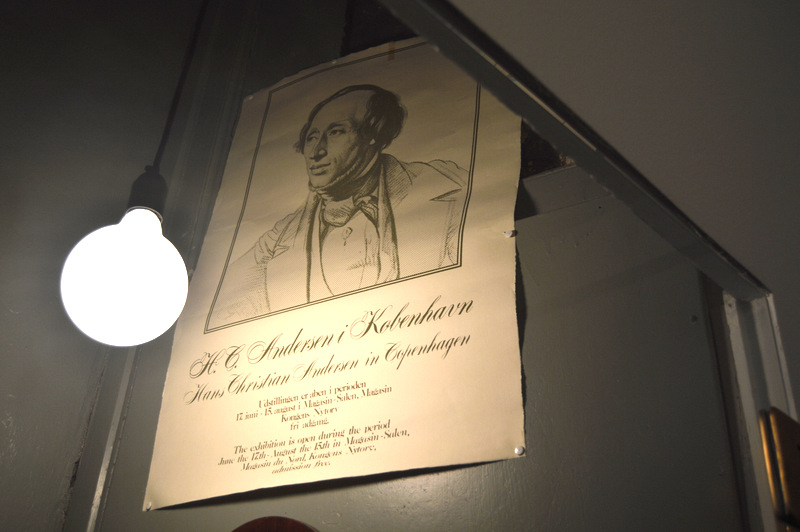 H. C. Andersen i København
Hans Christian Andersen in Copenhagen
Udstillingen er åben i perioden
17. juni - 15. august i Magasin-Salen, Magasin
Kongens Nytorv
fri adgang.
The exhibition is open during the period
June the 17th - August the 15th in Magasin-Salen,
Magasin du Nord, Kongens Nytorv,
admission free.